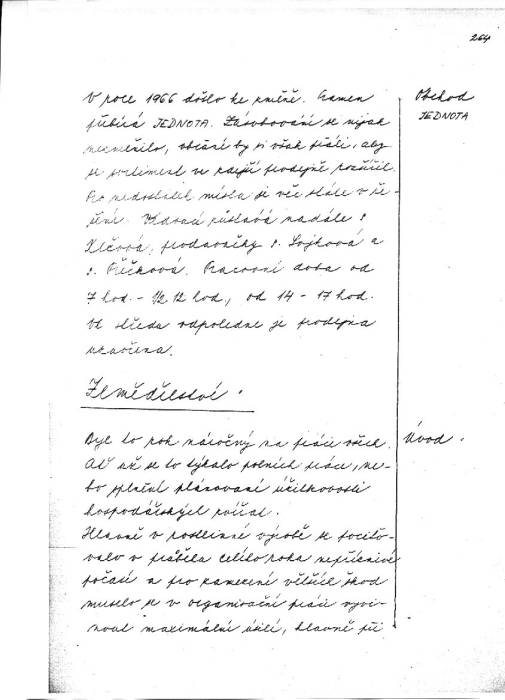 264
V roce 1966 došlo ke změně. Pramen
přebírá JEDNOTA. Zásobování se nijak
nezměnilo, občané by si však přáli, aby
se sortiment ve zdejší prodejně rozšířil.
Pro nedostatek místa je věc stále v ře-
šení. Vedoucí zůstává nadále s.
Klčová, prodavačky s. Sojková a
s. Pracovní doba od
7 hod. - 1/2 12 hod, od 14 - 17 hod.
Ve středu odpoledne je prodejna
uzavřena.
Obchod
JEDNOTA
Zemědělství.
Byl to rok náročný na práci všech.
Ať už se to týkalo polních prací, ne-
bo splnění plánované užitkovosti
hospodářských zvířat.
Hlavně v rostlinné výrobě se pociťo-
valo v průběhu celého roku nepříznivé
počasí a pro zamezení větších škod
muselo se v organisační práci vyvi-
nout maximální úsilí, hlavně při
Úvod.